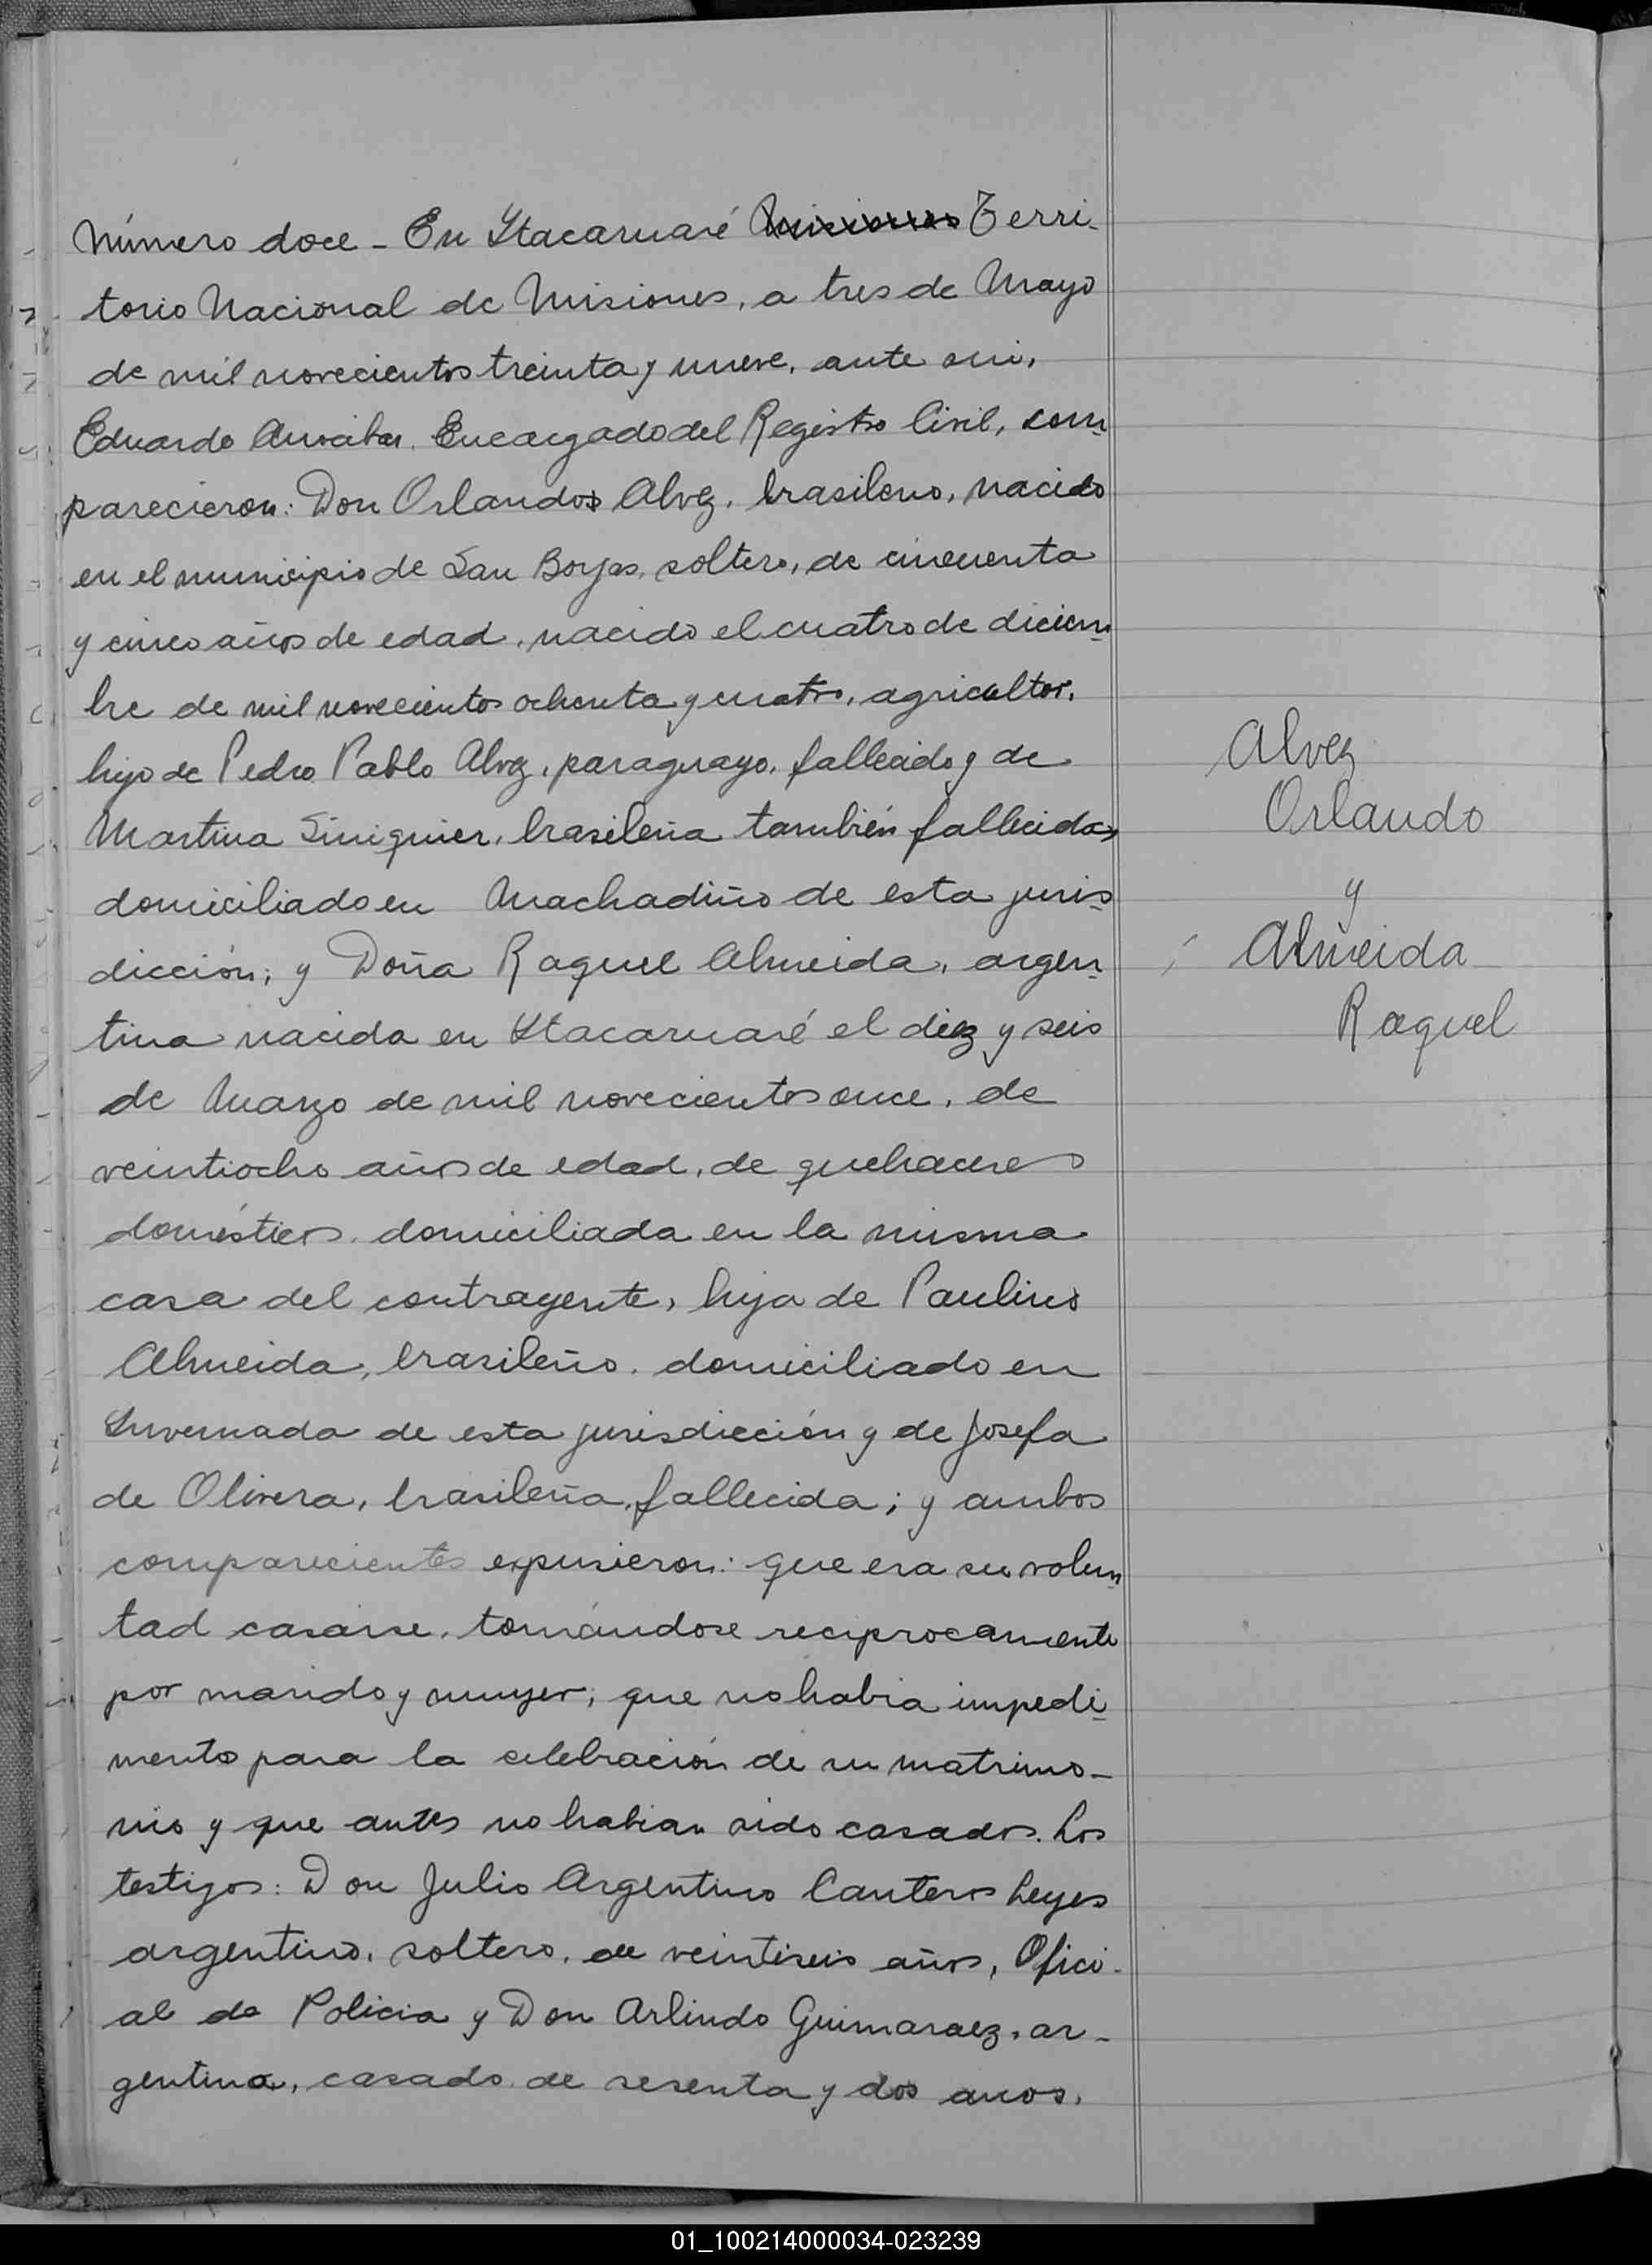 Número doce - En Ytacaruaré Misiones Terri-
torio Nacional de Misiones, a tres de Mayo
de mil novecientos treinta y nueve, ante mi,
Eduardo Encargado del Registro Civil, com-
parecieron: Don Orlandos Alvez, brasileno, nacido
en el municipio de San Borjas, soltero, de cincuenta
y cinco años de edad, nacido el cuatro de diciem-
bre de mil novecientos ochenta y cuatro, agricultor,
hijo de Pedro Pablo Alvez, paraguayo, fallecido y de
Martina Siniquier, brasileña también fallecida,
domiciliado en Machadiño de esta juris-
dicción; y Doña Raquel Almeida, argen-
tina nacida en Ytacaruaré el diez y seis
de Marzo de mil novecientos once, de
veintiocho años de edad, de quehaceres
domésticos, domiciliada en la misma
casa del contrayente, hija de Paulino
Almeida, brasileño, domiciliado en
Invernada de esta jurisdicción y de Josefa
de Olivera, brasileña, fallecida; y ambos
comparecientes expusieron: que era su volun-
tad casarse, tomándose reciprocamente
por marido y mujer; que no habia impedi-
mento para la celebración de su matrimo-
nio y que antes no habian sido casados. Los
testigos: Don Julio Argentino Canteros Leyes
argentino, soltero, de veintiseis años, Ofici-
al de Policia y Don Arlindo Guimaraez, ar-
gentino, casado de sesenta y dos anos,
Alvez
Orlando
y
Almeida
Raquel
01_100214000034-023239